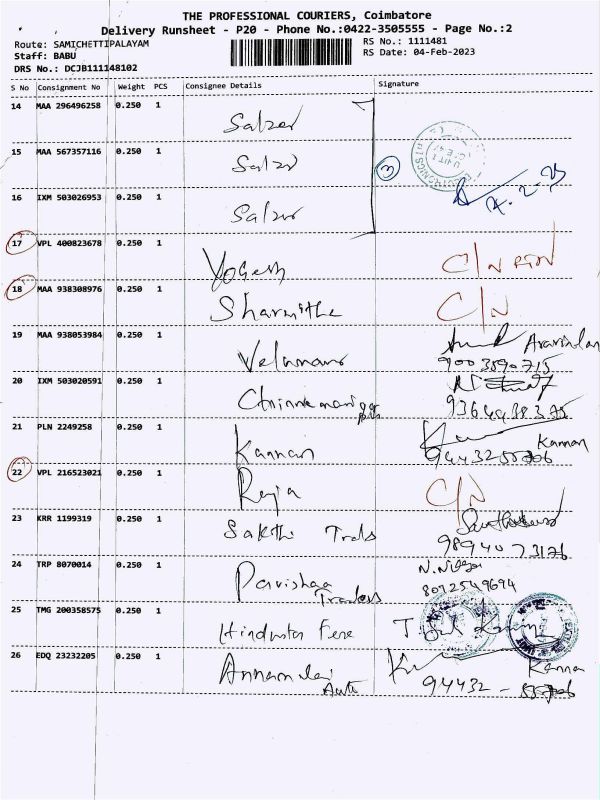 THE PROFESSIONAL COURIERS, Coimbatore
Delivery Runsheet - P20 - Phone No.:0422-3505555 - Page No.:2
Route: SAMICHETTIPALAYAM
RS No.: 1111481
Staff: BABU
RS Date: 04-Feb-2023
DRS No.: DCJB111148102
S No Consignment No Weight PCS Consignee Details Signature
14 MAA 296496258 0.250 1 Salzer
15 MAA 567357116 0.250 1 Salzer
3
16 IXM 503026953 0.250 1 Salzer
17 VPL 400823678 0.250 1 Yogesh C/N
18 MAA 938308976 0.250 1 Sharmitha C/N
19 MAA 938053984 0.250 1 Velumani Aravindan
9003590715
20 IXM 503020591 0.250 1
21 PLN 2249258 0.250 1 Kannan Kannan
22 VPL 216523021 0.250 1 Raja C/N
23 KRR 1199319 0.250 1 Sakthi Trads
9894073176
24 TRP 8070014 0.250 1 Traders
8072549694
25 TMG 200358575 0.250 1
26 EDQ 23232205 0.250 1 Annamalai Auto Kannan
94432 -